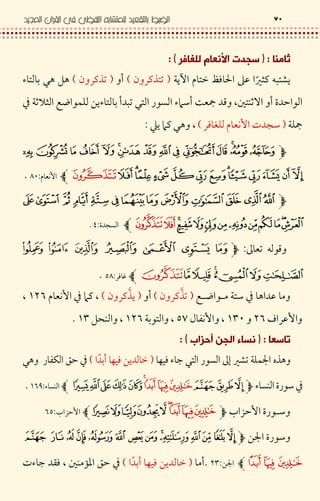 ٧٠
الضبط بالتقعيد للمتشابه اللفظي في القرآن المجيد
ثامنا : ( سجدت الأنعام للغافر ) :
يشتبه كثيرًا على الحافظ ختام الآية ( تتذكرون ) أو ( تذكرون ) هل هي بالتاء
الواحدة أو الاثنتين، وقد جمعت أسماء السور التي تبدأ بالتاءين للمواضع الثلاثة في
جملة ( سجدت الأنعام للغافر ) ، وهي كما يلي :
﴿ وَحَاجَّهُ قَوْمُهُ قَالَ أَتُحَاجُّونِّي فِي اللَّهِ وَقَدْ هَدَانِ وَلَا أَخَافُ مَا تُشْرِكُونَ بِهِ
إِلَّا أَنْ يَشَاءَ رَبِّي شَيْئًا وَسِعَ رَبِّي كُلَّ شَيْءٍ عِلْمًا أَفَلَا تَتَذَكَّرُونَ ﴾ الأنعام: ٨٠ .
﴿ اللَّهُ الَّذِي خَلَقَ السَّمَاوَاتِ وَالْأَرْضَ وَمَا بَيْنَهُمَا فِي سِتَّةِ أَيَّامٍ ثُمَّ اسْتَوَى عَلَى
الْعَرْشِ مَا لَكُمْ مِنْ دُونِهِ مِنْ وَلِيٍّ وَلَا شَفِيعٍ أَفَلَا تَتَذَكَّرُونَ ﴾ السجدة: ٤ .
وقوله تعالى: ﴿ وَمَا يَسْتَوِي الْأَعْمَى وَالْبَصِيرُ وَالَّذِينَ آمَنُوا وَعَمِلُوا
الصَّالِحَاتِ وَلَا الْمُسِيءُ قَلِيلًا مَا تَتَذَكَّرُونَ ﴾ غافر: ٥٨ .
وما عداها في ستة مواضع ( تذَّكرون ) أو ( يذَّكرون ) ، كما في الأنعام ١٢٦ ،
والأعراف ٢٦ و ١٣٠ ، والأنفال ٥٧ ، والتوبة ١٢٦ ، والنحل ١٣ .
تاسعا : ( نساء الجن أحزاب ) :
وهذه الجملة تشير إلى السور التي جاء فيها ( خالدين فيها أبدًا ) في حق الكفار وهي
في سورة النساء ﴿ إِلَّا طَرِيقَ جَهَنَّمَ خَالِدِينَ فِيهَا أَبَدًا وَكَانَ ذَلِكَ عَلَى اللَّهِ يَسِيرًا ﴾ النساء: ١٦٩ .
وسورة الأحزاب ﴿ خَالِدِينَ فِيهَا أَبَدًا لَا يَجِدُونَ وَلِيًّا وَلَا نَصِيرًا ﴾ الأحزاب: ٦٥
وسورة الجن ﴿ إِلَّا بَلَاغًا مِنَ اللَّهِ وَرِسَالَاتِهِ وَمَنْ يَعْصِ اللَّهَ وَرَسُولَهُ فَإِنَّ لَهُ نَارَ جَهَنَّمَ
خَالِدِينَ فِيهَا أَبَدًا ﴾ الجن: ٢٣ .أما ( خالدين فيها أبدًا ) في حق المؤمنين ، فقد جاءت